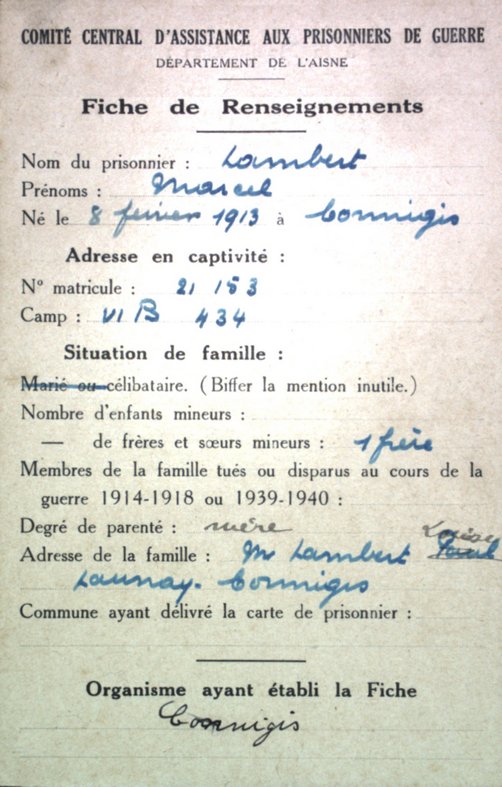 COMITÉ CENTRAL D'ASSISTANCE AUX PRISONNIERS DE GUERRE
DÉPARTEMENT DE L'AISNE
Fiche de Renseignements
Nom du prisonnier : Lambert
Prénoms : Marcel
Né le 8 février 1913 à Connigis
Adresse en captivité :
N° matricule : 21 153
Camp : VI B 434
Situation de famille :
Marié ou célibataire. (Biffer la mention inutile.)
Nombre d'enfants mineurs :
— de frères et sœurs mineurs : 1 frère
Membres de la famille tués ou disparus au cours de la
guerre 1914-1918 ou 1939-1940 :
Degré de parenté : mère
Adresse de la famille : Mr Lambert Paul Louise
Launay. Connigis
Commune ayant délivré la carte de prisonnier :
Organisme ayant établi la Fiche
Connigis